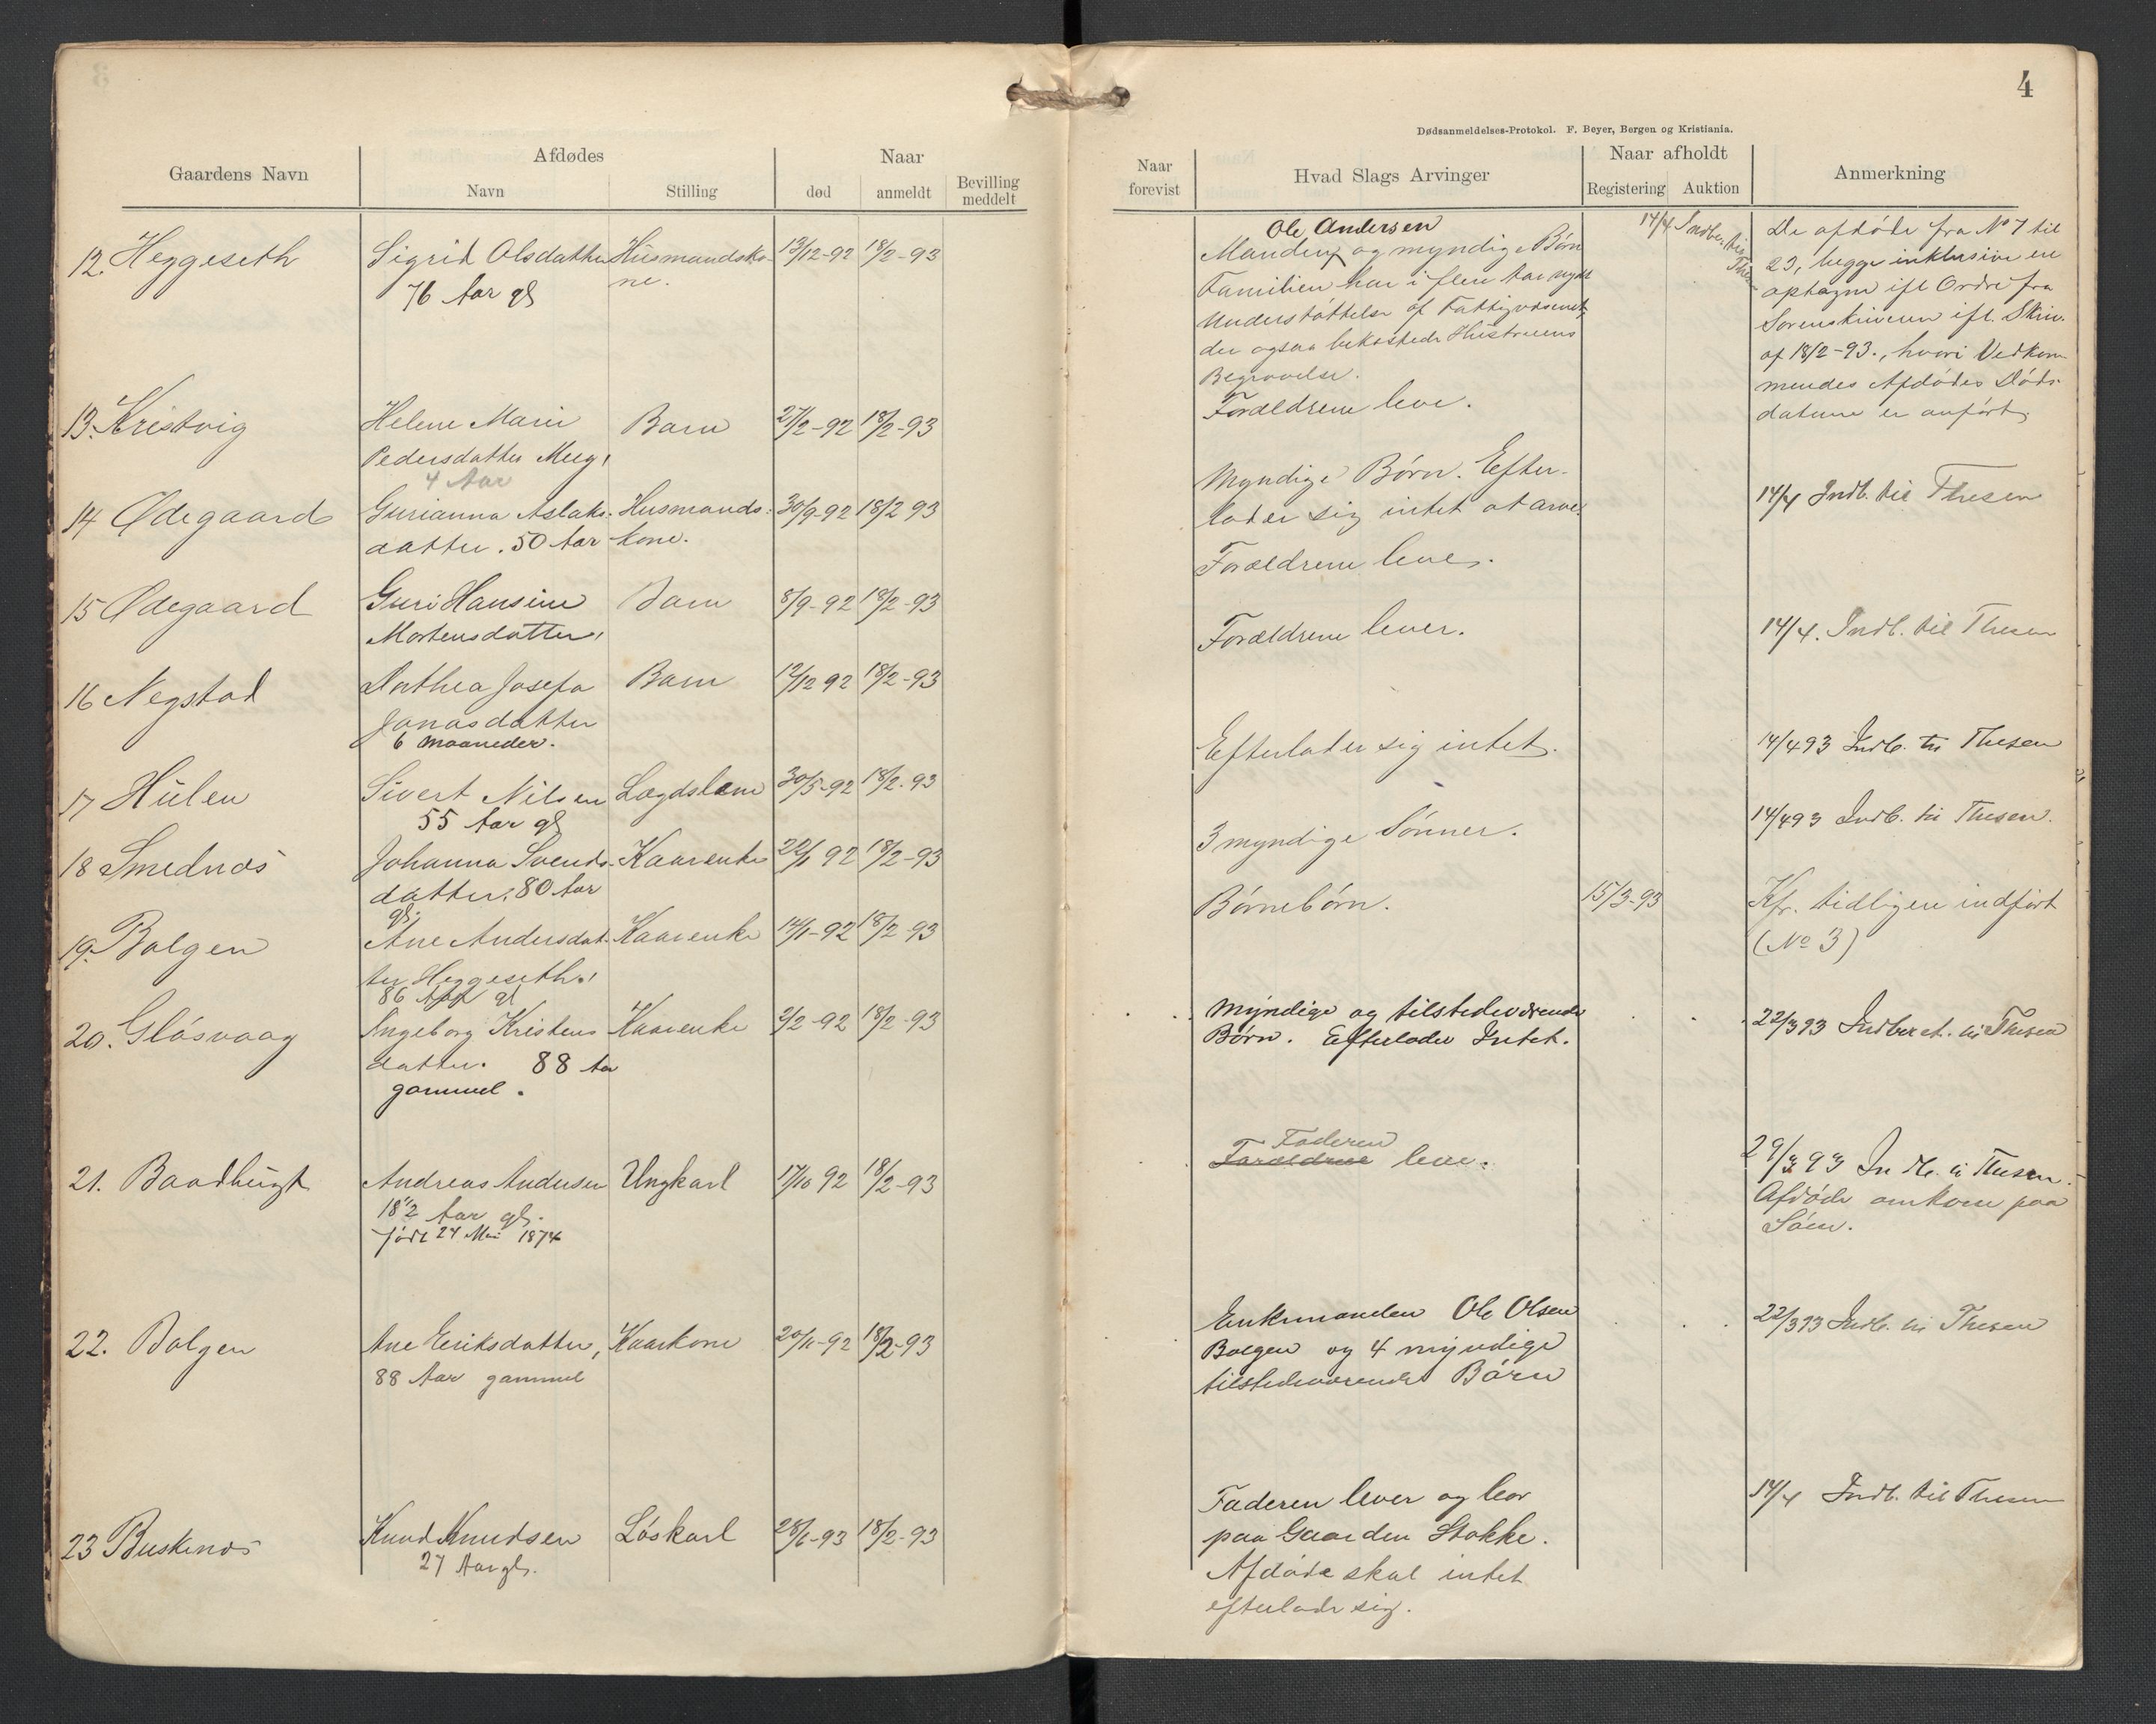 4
Dødsanmeldelses-Protokol. F. Beyer, Bergen og Kristiania.
Gaardens Navn
Afdødes
Navn
Stilling
Naar
død
anmeldt
Bevilling
meddelt
Naar
forevist
Hvad Slags Arvinger
Naar afholdt
Registering
Auktion
Anmerkning
12. Heggeseth
Sigrid Olsdatter Husmandsko-
ne.
76 Aar gl
13/12-92 18/2-93
Ole Andersen
Manden og myndige Børn
Familien har i flere Aar nydt
Understøttelse af Fattigvæsenet,
der ogsaa bekostede Hustruens
Begravelse.
14/4 Indber. til
Thesen
De afdøde fra No 7 til
23, begge inklusive er
optagne ifl Ordre fra
Sorenskriveren ifl. Skriv.
af 18/2-93., hvori Vedkom-
mendes Afdødes Døds-
datum er anført.
13. Kristvig
Helene Marie Barn 27/2-92 18/2-93
Pedersdatter Meeg,
4 Aar
Forældrene leve.
14 Ødegaard
Gurianna Aslaks- Husmands- 30/9-92 18/2 93
datter. 50 Aar kone.
Myndige Børn. Efter-
lader sig intet at arve.
14/4 Indb. til Thesen
15 Ødegaard
Guri Hansine Barn 8/9-92 18/2-93
Mortensdatter,
Forældrene leve.
16 Negstad
Anthea Josefa Barn 12/12 92 18/2-93
Jonasdatter
6 Maaneder.
Forældrene lever.
14/4. Indb. til Thesen
17 Hulen
Sivert Nilsen Lægdslem 30/5-92 18/2-93
55 Aar gl
Efterlader sig intet.
14/4 93 Indb. til Thesen
18 Smednæs
Johanna Svends- Kaarenke 22/1 92 18/2-93
datter, 80 Aar
gl.
3 myndige Sønner.
14/4 93 Indb. til Thesen.
19. Bolgen
Ane Andersdat- Kaarenke 14/1-92 18/2-93
ter Heggeseth,
86 Aar gl
Børnebørn.
15/3-93
Kfr. tidligere indført
(No 3)
20. Gløsvaag
Ingeborg Kristens Kaarenke 2/2-92 18/2-93
datter. 88 Aar
gammel.
Myndige og tilstedeværende
Børn. Efterlader Intet.
22/3 93 Indberet. til Thesen
21. Baadbugt
Andreas Andersen Ungkarl 17/10 92 18/2-93
18 1/2 Aar gl.
født 24 Mai 1874
Faderen
Forældrene lever.
29/3 93 Indb. til Thesen.
Afdøde omkom paa
Søen.
22. Bolgen
Ane Eriksdatter, Kaarkone 20/11-92 18/2-93
88 Aar gammel
Enkemanden Ole Olsen
Bolgen og 4 myndige
tilstedeværende Børn
22/3 93 Indb. til Thesen
23 Buskenæs
Knud Knudsen Løskarl 28/1-93 18/2-93
27 Aar gl.
Faderen lever og bor
paa Gaarden Stokke.
Afdøde skal intet
efterlade sig.
14/4 Indb. til Thesen